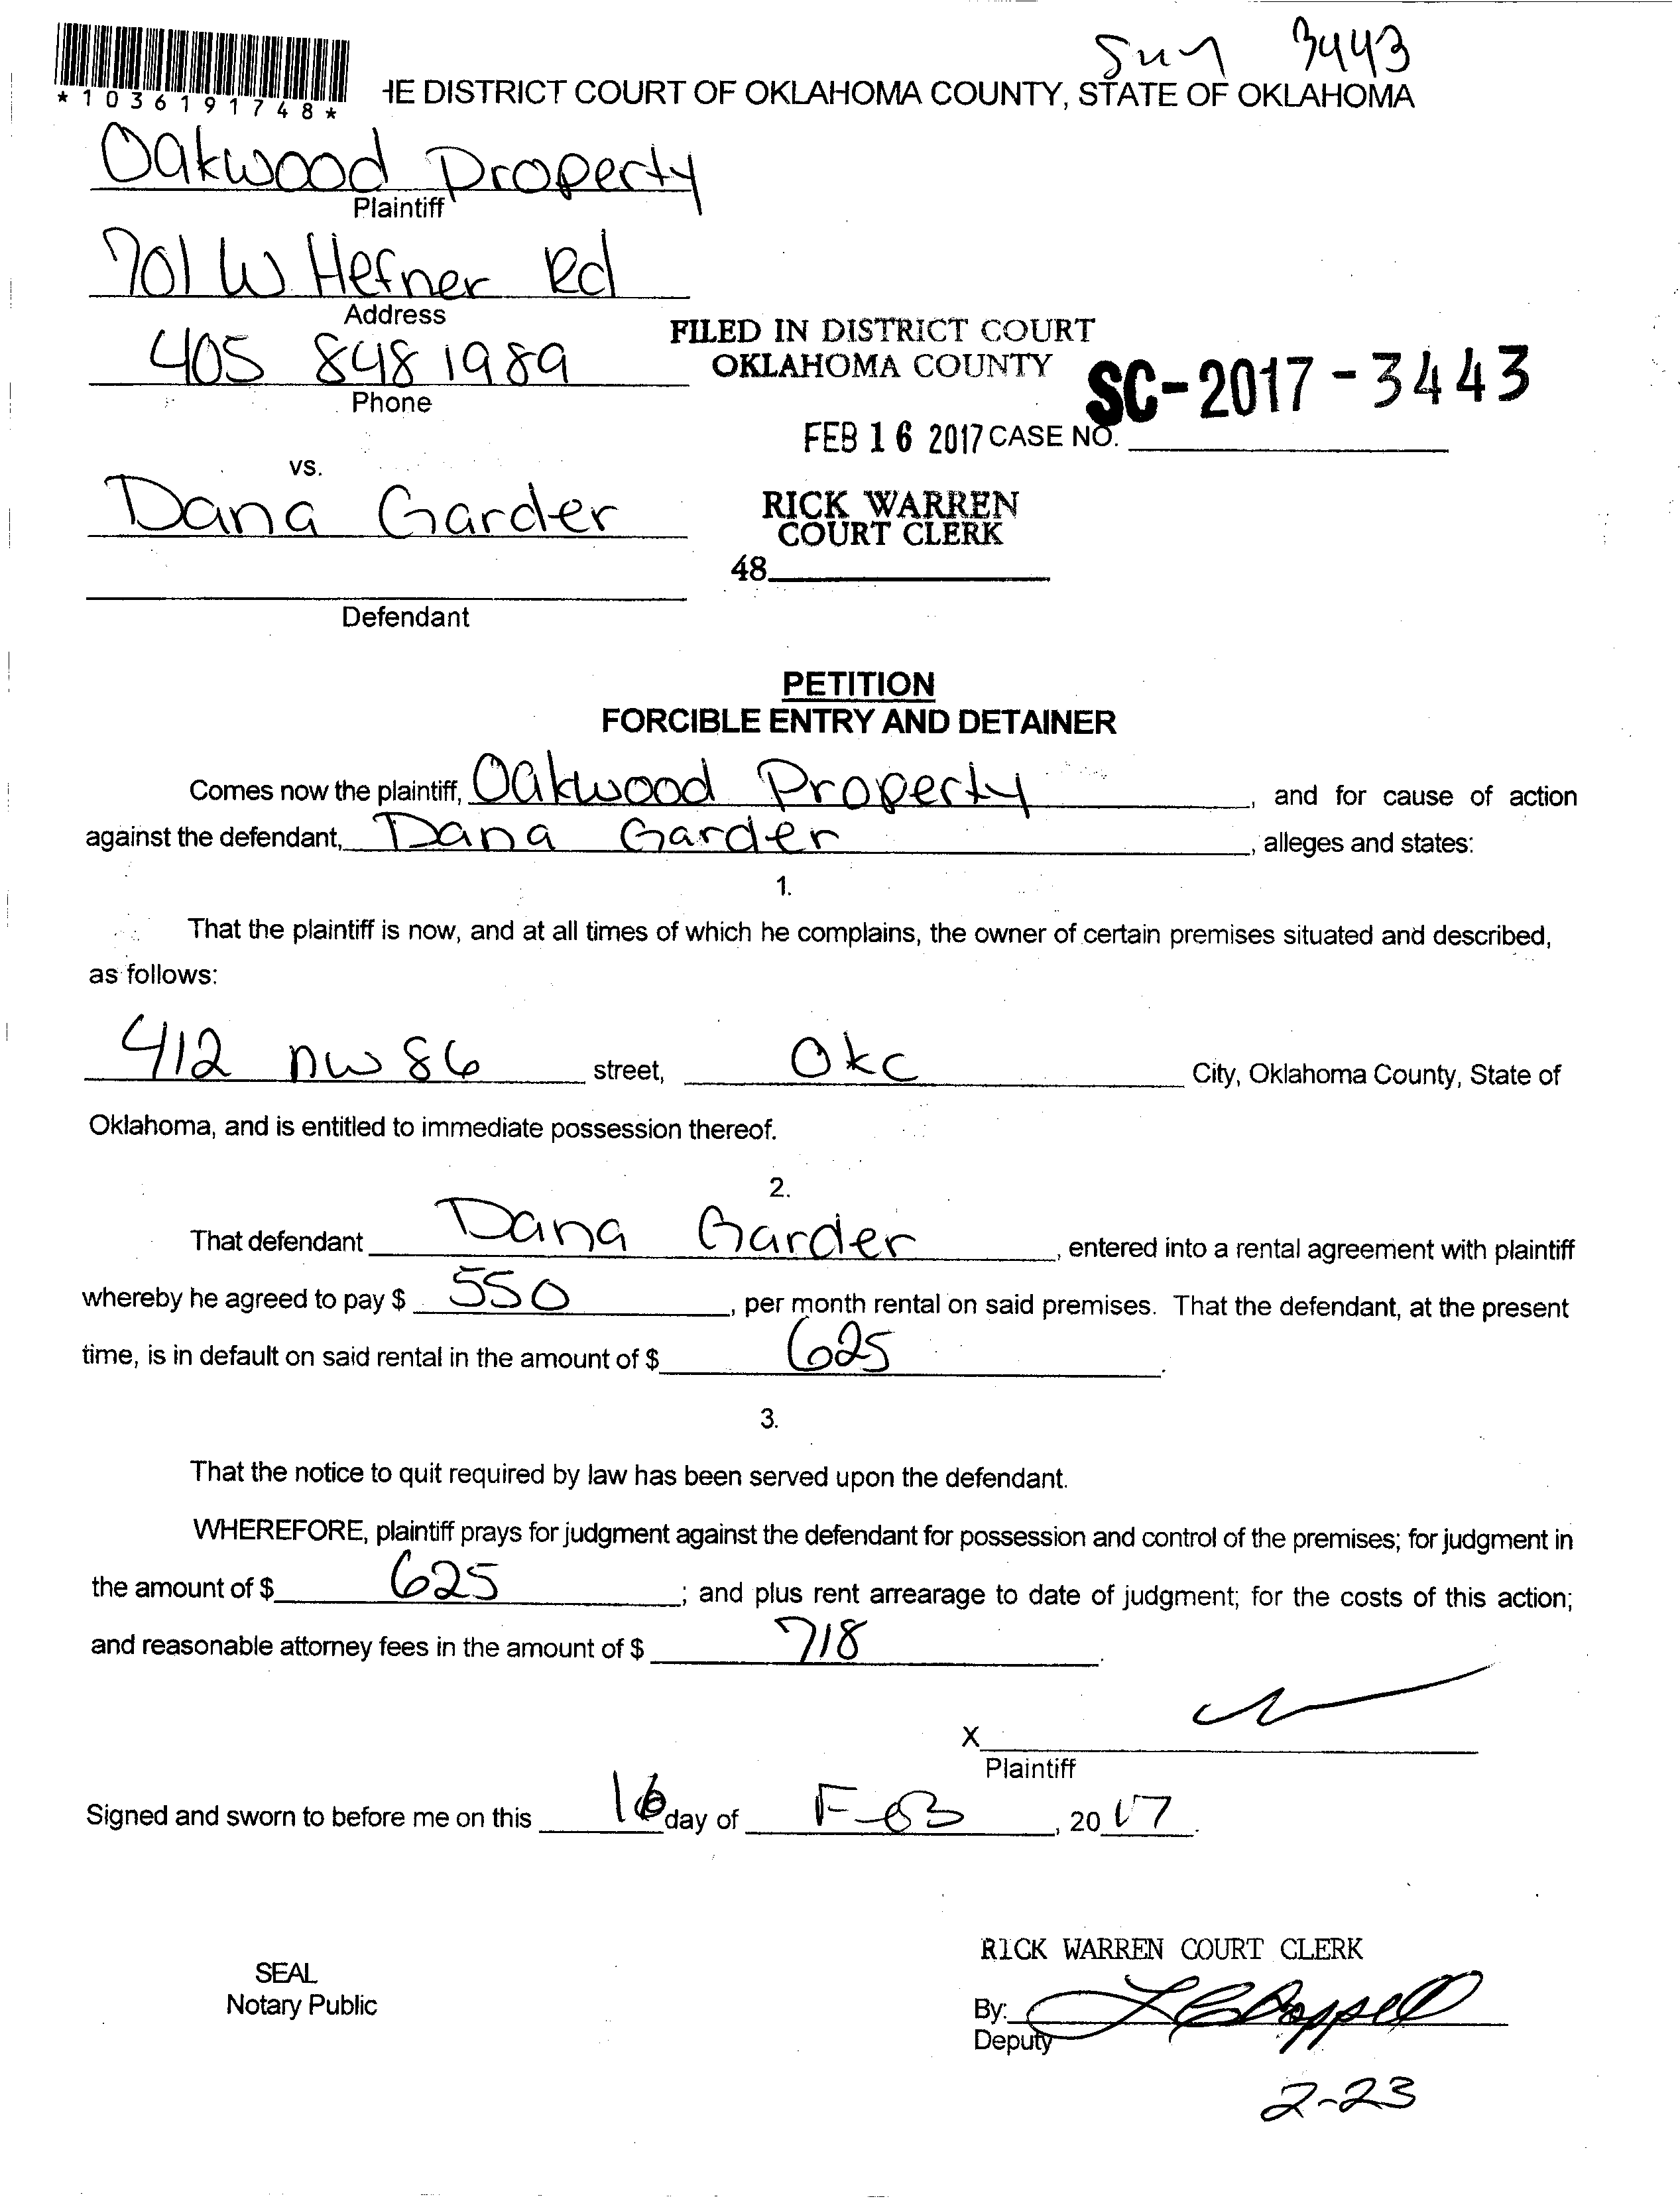 3443
*1036191748*
HE DISTRICT COURT OF OKLAHOMA COUNTY, STATE OF OKLAHOMA
Oakwood Property
Plaintiff
701 W Hefner Rd
Address
405 848 1989
Phone
FILED IN DISTRICT COURT
OKLAHOMA COUNTY
SC-2017-3443
FEB 16 2017 CASE NO.
vs.
Dana Garder
RICK WARREN
COURT CLERK
48
Defendant
PETITION
FORCIBLE ENTRY AND DETAINER
Comes now the plaintiff, Oakwood Property, and for cause of action
against the defendant, Dana Garder, alleges and states:
1.
That the plaintiff is now, and at all times of which he complains, the owner of certain premises situated and described,
as follows:
412 nw 86 street, Okc City, Oklahoma County, State of
Oklahoma, and is entitled to immediate possession thereof.
2.
That defendant Dana Garder, entered into a rental agreement with plaintiff
whereby he agreed to pay $ 550, per month rental on said premises. That the defendant, at the present
time, is in default on said rental in the amount of $ 625.
3.
That the notice to quit required by law has been served upon the defendant.
WHEREFORE, plaintiff prays for judgment against the defendant for possession and control of the premises; for judgment in
the amount of $ 625; and plus rent arrearage to date of judgment; for the costs of this action;
and reasonable attorney fees in the amount of $ 718.
X
Plaintiff
Signed and sworn to before me on this 16 day of FEB, 2017.
RICK WARREN COURT CLERK
SEAL
Notary Public
By:
Deputy
2-23